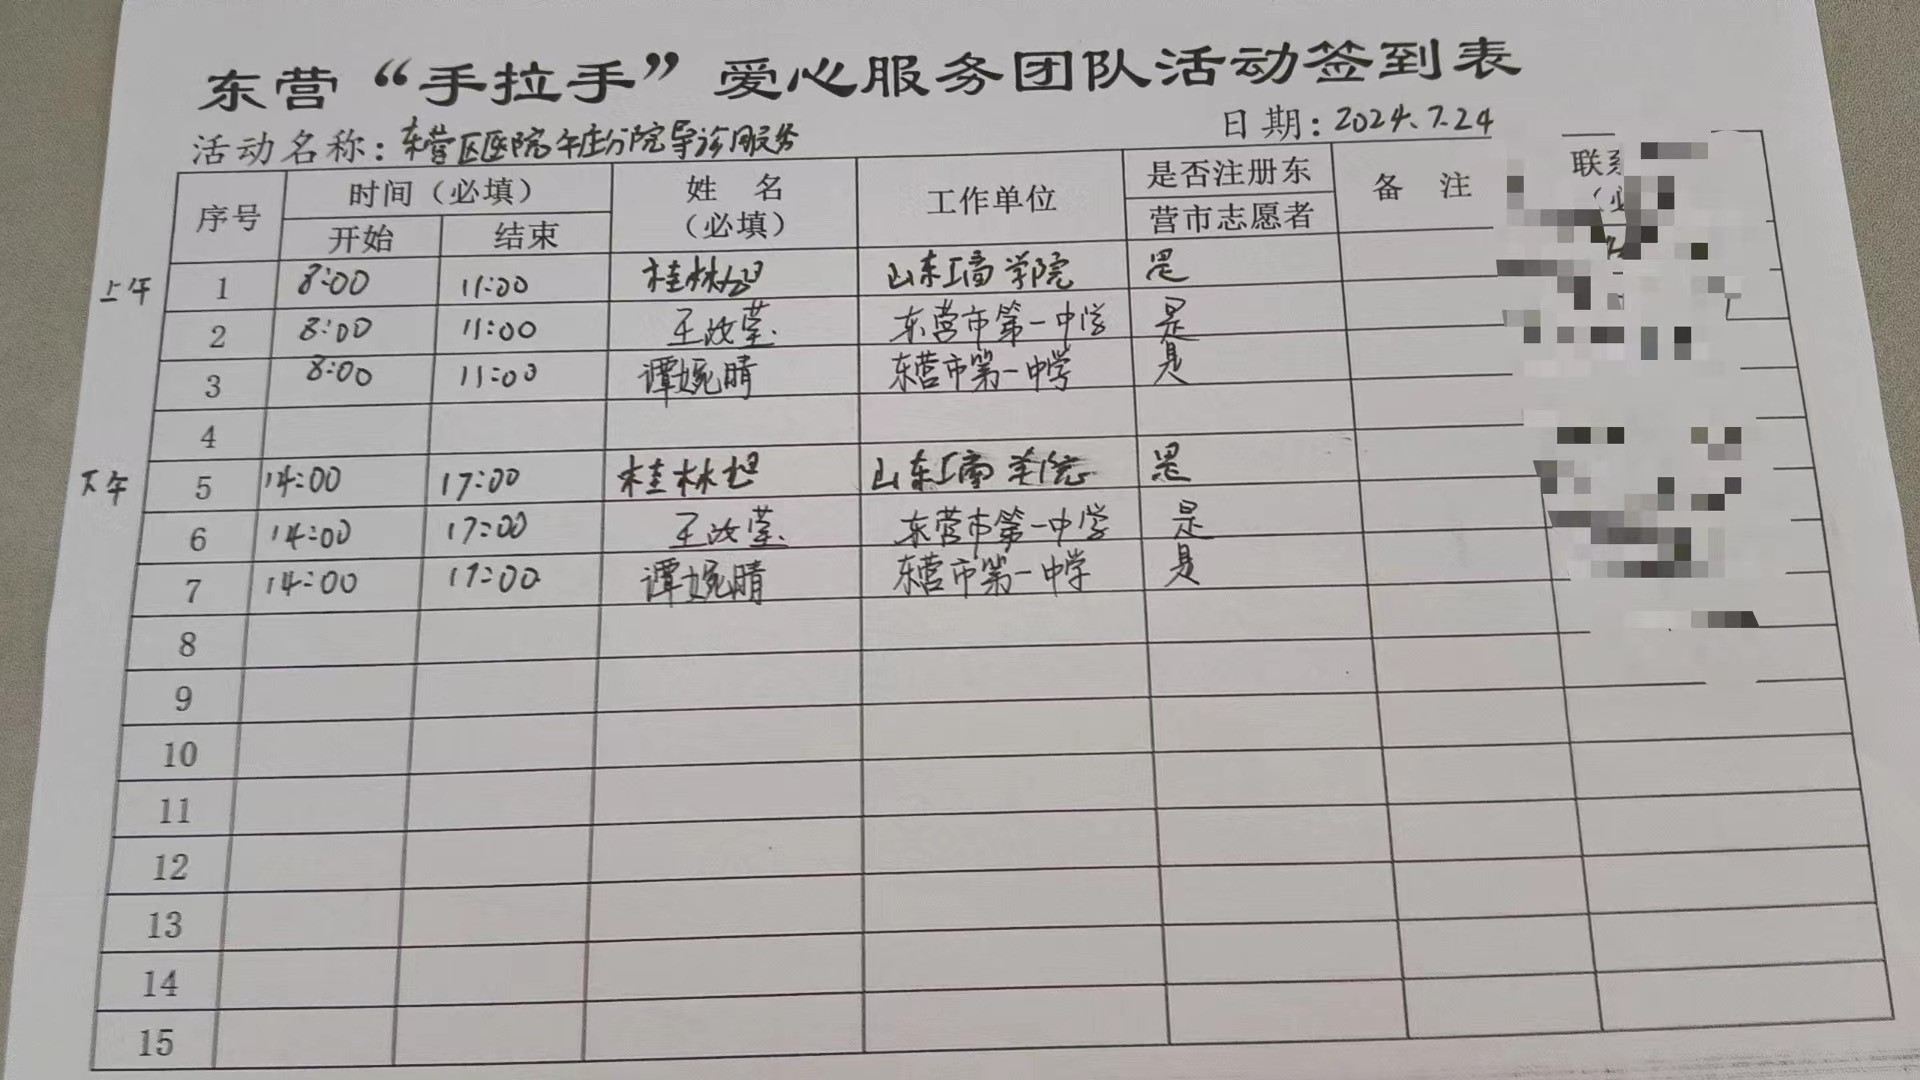 东营“手拉手”爱心服务团队活动签到表
活动名称：东营区医院午庄分院导诊服务 日期：2024.7.24
序号 时间（必填） 姓 名（必填） 工作单位 是否注册东营市志愿者 备 注 联系
开始 结束
上午 1 8:00 11:00 桂林 山东工商学院 是
2 8:00 11:00 王改莹 东营市第一中学 是
3 8:00 11:00 谭婉晴 东营市第一中学 是
4
下午 5 14:00 17:00 桂林 山东工商学院 是
6 14:00 17:00 王改莹 东营市第一中学 是
7 14:00 17:00 谭婉晴 东营市第一中学 是
8
9
10
11
12
13
14
15